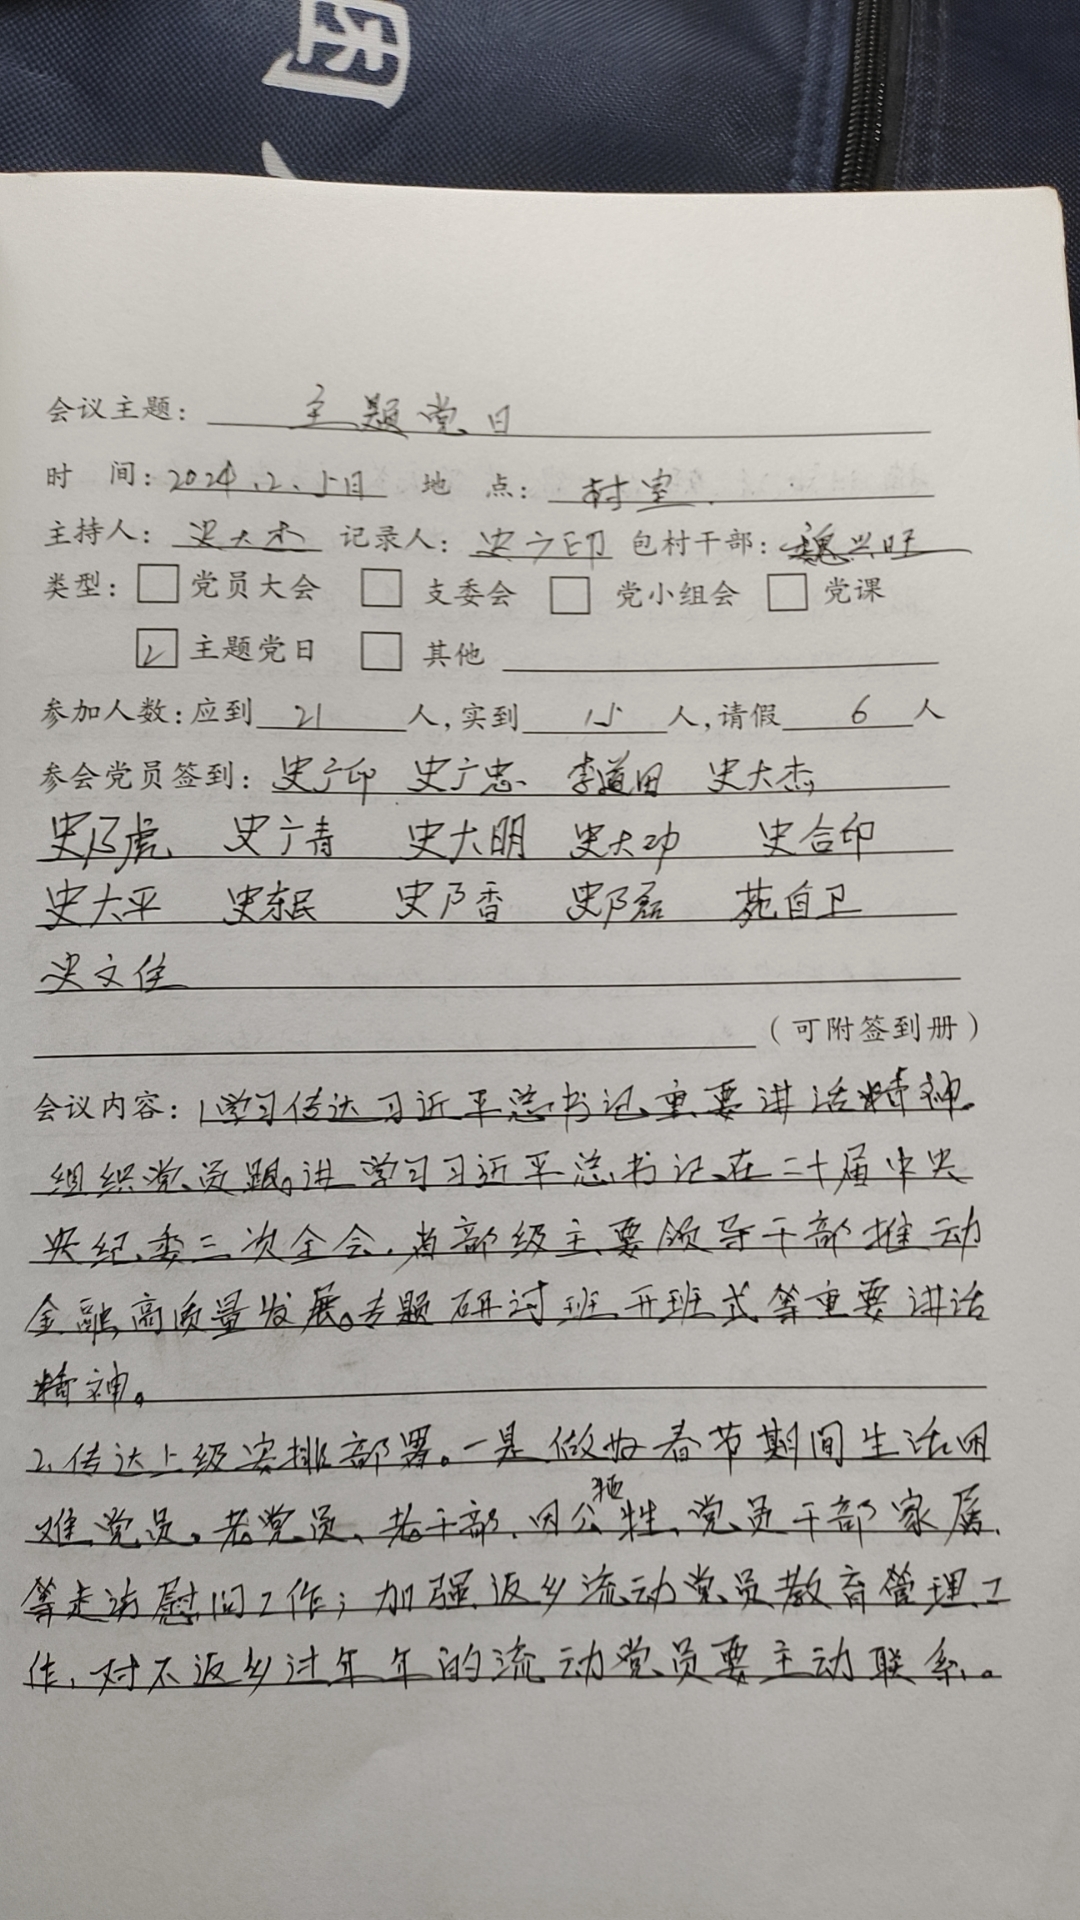 会议主题：主题党日
时 间：2024.2.5日 地 点：村室.
主持人：史大杰 记录人：史广印 包村干部：魏兴旺
类型：□党员大会 □支委会 □党小组会 □党课
☑主题党日 □其他
参加人数：应到21人，实到15人，请假6人
参会党员签到：史广印 史广忠 李道田 史大杰
史乃虎 史广青 史大明 史大功 史合印
史大平 史东民 史香 史磊 苑自卫
史文住
（可附签到册）
会议内容：1学习传达习近平总书记重要讲话精神.
组织党员跟进学习习近平总书记在二十届中央
央纪委三次全会，省部级主要领导干部推动
金融高质量发展。专题研讨班开班式等重要讲话
精神。
2.传达上级安排部署。一是做好春节期间生活困
难党员。老党员、老干部、因公牺牲、党员干部家属、
等走访慰问工作；加强返乡流动党员教育管理工
作，对不返乡过年年的流动党员要主动联系。